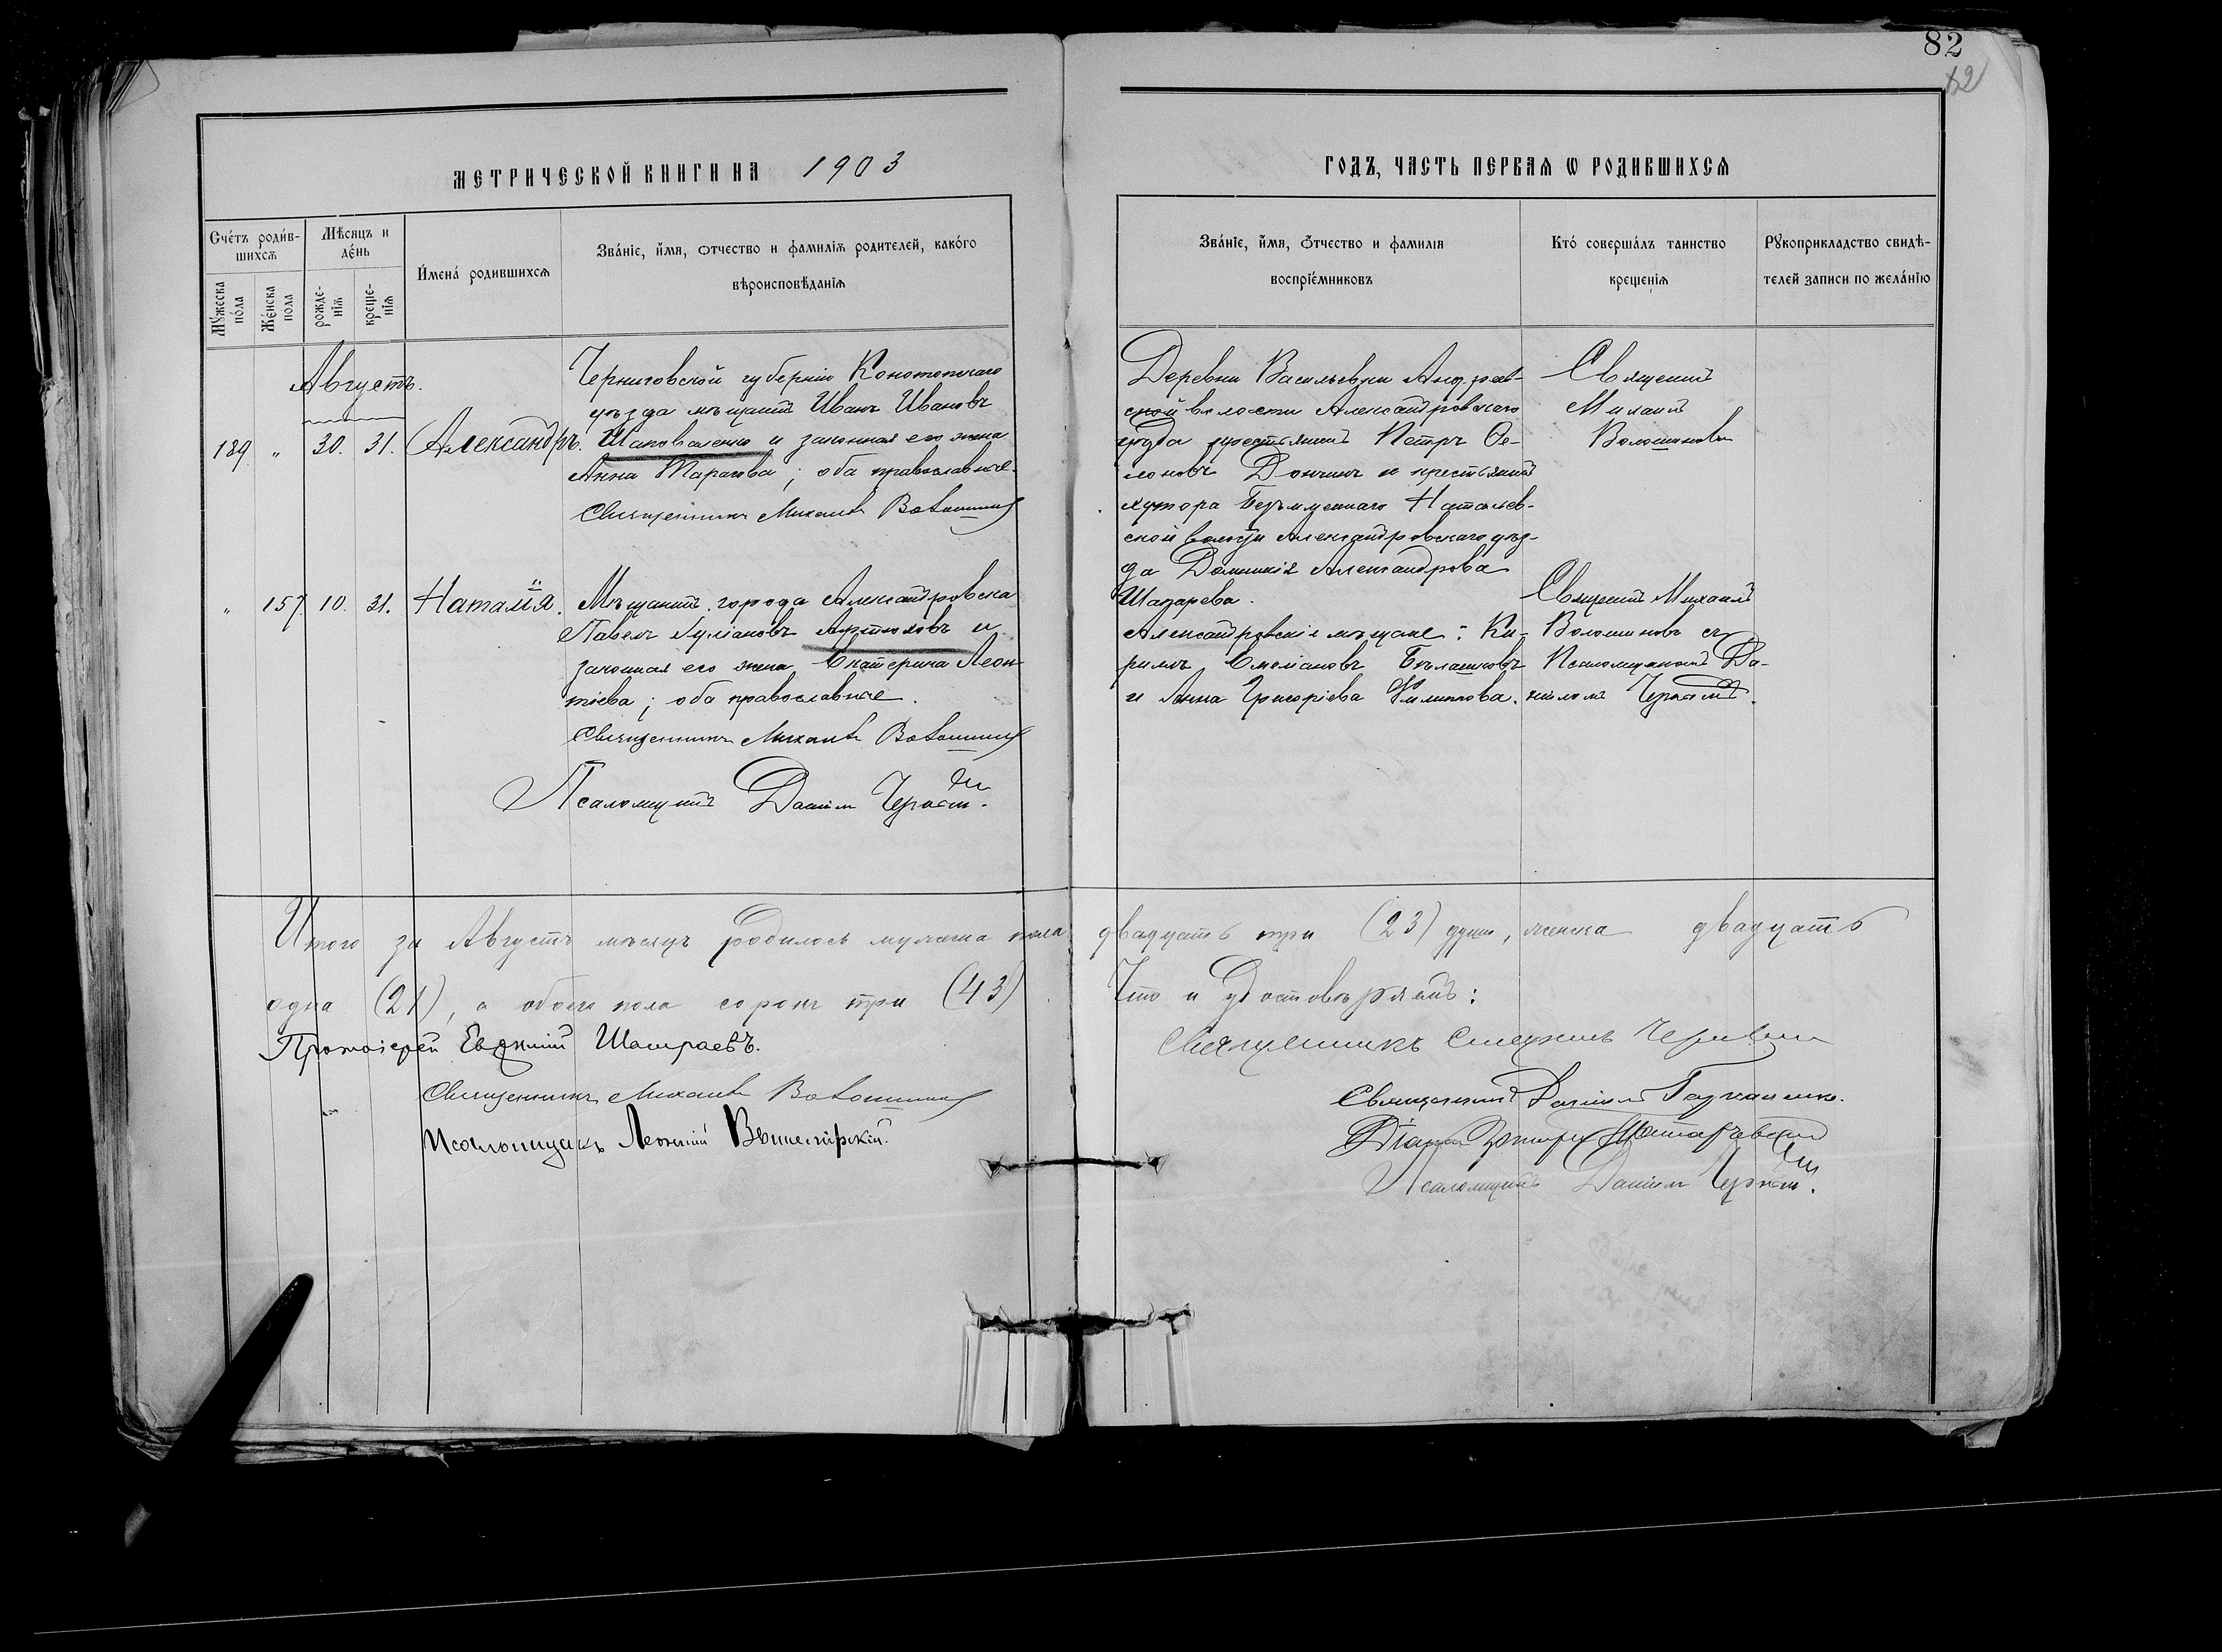 82
МЕТРИЧЕСКОЙ КНИГИ НА 1903
ГОДЪ, ЧАСТЬ ПЕРВАѦ Ѡ РОДИВШИХСѦ
Счéтъ роди́в-
шихсѧ
Мѣ́сяцъ и
де́нь
Му́жеска
по́ла
Же́нска
пола
рожде-
нїѧ
креще-
нїѧ
И́мена́ родившихсѧ
Зва́нїе, и́мя, ѻтчество и фамилїѧ родителей, како́го
вѣроисповѣ́данїѧ
Зва́нїе, и́мя, ѻ́тчество и фамилїя
воспрїе́мниковъ
Кто́ соверша́лъ таинство
крещенїѧ
Рꙋкоприкладство свидѣ́-
телей записи по жела́нїю
Августъ.
189 " 30. 31. Александръ.
Черниговской губерніи Конотопскаго
уѣзда мѣщанинъ Иванъ Ивановъ
Шаповаленко и законная его жена
Анна Тарасова; оба православные.
Священникъ Михаилъ Волошинов
Деревни Васильевки Андреев-
ской волости Александровскаго
уѣзда крестьянинъ Петръ
Дончикъ и крестьянка
хутора Безъимяннаго Натальев-
ской волости Александровскаго уѣз-
да Домникія Александрова
Шапарева.
Священникъ
Михаилъ
Волошиновъ
" 157 10. 31. Наталія.
Мѣщанинъ города Александровска
Павелъ Іуліановъ Артюховъ и
законная его жена Екатерина Леон-
тіева; оба православные.
Священникъ Михаилъ Волошинов
Псаломщикъ Даніил
Александровскіе мѣщане: Ки-
риллъ Емеліановъ Бѣлашковъ
и Анна Григоріева Филиппова.
Священникъ Михаилъ
Волошиновъ съ
Псаломщикомъ Да-
ніиломъ
Итого за Августъ мѣсяцъ родилось мужеска пола двадцать три (23) душъ, женска двадцать
одна (21), а обоего пола сорокъ три (43) Что и удостовѣряемъ:
Протоіерей Евѳимій
Священникъ Михаилъ Волошинов
Псаломщикъ Леонтій
Священникъ
Священникъ Даніилъ
Псаломщикъ Даніил